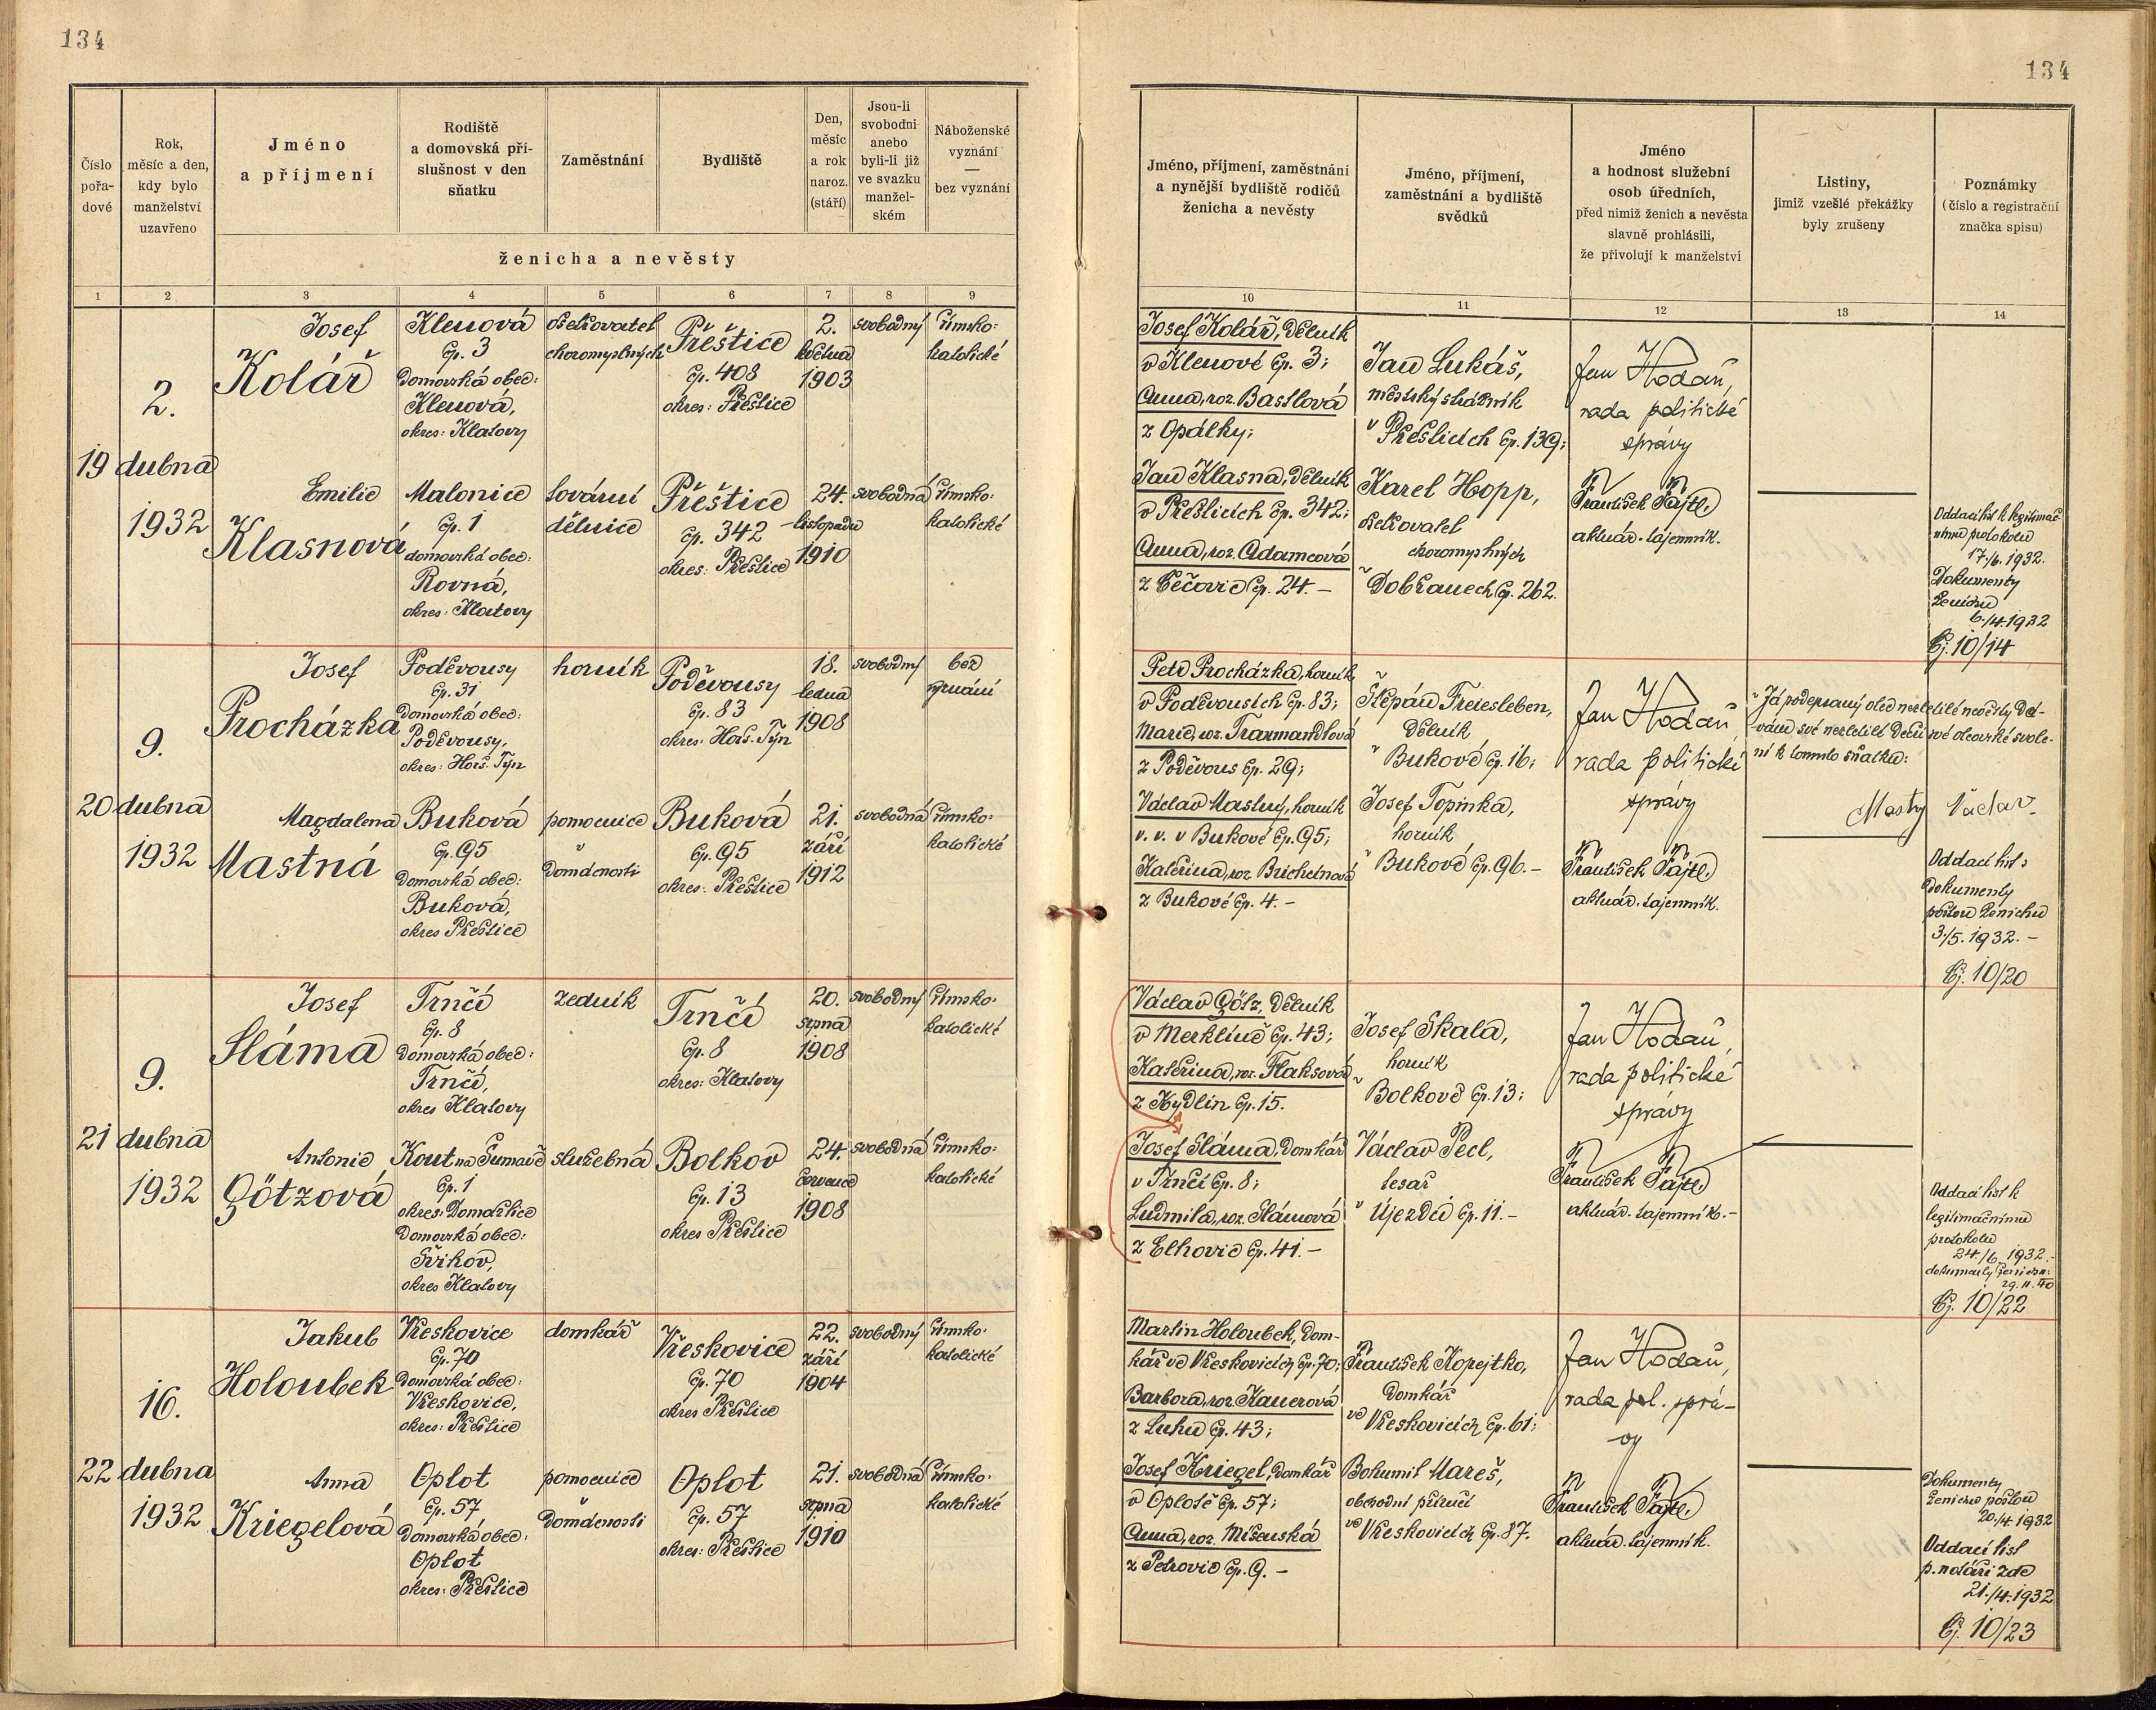 134
134
Číslo
pořa-
dové
Rok,
měsíc a den,
kdy bylo
manželství
uzavřeno
Jméno
a příjmení
Rodiště
a domovská pří-
slušnost v den
sňatku
Zaměstnání
Bydliště
Den,
měsíc
a rok
naroz.
(stáří)
Jsou-li
svobodni
anebo
byli-li již
ve svazku
manžel-
ském
Náboženské
vyznání
—
bez vyznání
ženicha a nevěsty
1 2 3 4 5 6 7 8 9
Jméno, příjmení, zaměstnání
a nynější bydliště rodičů
ženicha a nevěsty
Jméno, příjmení,
zaměstnání a bydliště
svědků
Jméno
a hodnost služební
osob úředních,
před nimiž ženich a nevěsta
slavně prohlásili,
že přivolují k manželství
Listiny,
jimiž vzešlé překážky
byly zrušeny
Poznámky
(číslo a registrační
značka spisu)
10 11 12 13 14
19
2.
dubna
1932
Josef
Kolář
Klenová
čp. 3
Domovská obec:
Klenová,
okres: Klatovy
ošetřovatel
choromyslných
Přeštice
čp. 408
okres: Přeštice
2.
května
1903
svobodný
římsko-
katolické
Emilie
Klasnová
Malonice
čp. 1
domovská obec:
Rovná,
okres: Klatovy
tovární
dělnice
Přeštice
čp. 342
okres: Přeštice
24.
listopadu
1910
svobodná
římsko-
katolické
Josef Kolář, dělník
v Klenové čp. 3;
Anna, roz. Bastlová
z Opálky;
Jan Klasna, dělník
v Přešticích čp. 342;
Anna, roz. Adamcová
z Bečovic čp. 24. –
Jan Lukáš,
městský strážník
v Přešticích čp. 139;
Karel Hopp,
ošetřovatel
choromyslných
v Dobřanech čp. 262.
Jan Hodaň,
rada politické
správy
František Fajtl
aktuár. tajemník.
Oddací list k legitimač-
nímu protokolu
17./6. 1932.
Dokumenty
ženichu
6./4. 1932
Čj. 10/14
20
9.
dubna
1932
Josef
Procházka
Poděvousy
čp. 31
Domovská obec:
Poděvousy,
okres: Horš. Týn
horník
Poděvousy
čp. 83
okres: Horš. Týn
18.
ledna
1908
svobodný
bez
vyznání
Magdalena
Mastná
Buková
čp. 95
Domovská obec:
Buková,
okres Přeštice
pomocnice
v domácnosti
Buková
čp. 95
okres: Přeštice
21.
září
1912
svobodná
římsko-
katolické
Petr Procházka, horník
v Poděvousích čp. 83;
Marie, roz. Traxmandlová
z Poděvous čp. 29;
Václav Mastný, horník
v. v. v Bukové čp. 95;
Kateřina, roz.
z Bukové čp. 4. –
Štěpán Freiesleben,
dělník
v Bukové čp. 16;
Josef Topinka,
horník
v Bukové čp. 96. –
Jan Hodaň
rada politické
správy
František Fajtl
aktuár. tajemník.
Já podepsaný otec nezletilé nevěsty dá-
vám své nezletilé dceři své otcovské svole-
ní k tomuto sňatku:
Mastný Václav
Oddací list
dokumenty
poštou ženichu
3./5. 1932. –
Čj. 10/20
21
9.
dubna
1932
Josef
Sláma
Trnčí
čp. 8
Domovská obec:
Trnčí,
okres Klatovy
zedník
Trnčí
čp. 8
okres: Klatovy
20.
srpna
1908
svobodný
římsko-
katolické
Antonie
Götzová
Kout na Šumavě
čp. 1
okres: Domažlice
Domovská obec:
Střihov,
okres Klatovy
služebná
Bolkov
čp. 13
okres Přeštice
24.
července
1908
svobodná
římsko-
katolické
Václav Götz, dělník
v Merklíně čp. 43;
Kateřina, roz. Flaksová
z Kydlin čp. 15.
Josef Sláma, domkář
v Trnčí čp. 8;
Ludmila, roz. Slámová
z Elhovic čp. 41. –
Josef Skala,
horník
v Bolkově čp. 13;
Václav Pecl,
tesař
v Újezdě čp. 11. –
Jan Hodaň,
rada politické
správy
František Fajtl
aktuár. tajemník. –
Oddací list k
legitimačnímu
protokolu
24./6. 1932. –
dokumenty ženichu:
29. 11. 40
Čj. 10/22
22
16.
dubna
1932
Jakub
Holoubek
Vřeskovice
čp. 70
Domovská obec:
Vřeskovice,
okres: Přeštice
domkář
Vřeskovice
čp. 70
okres Přeštice
22.
září
1904
svobodný
římsko-
katolické
Anna
Kriegelová
Oplot
čp. 57
Domovská obec:
Oplot
okres: Přeštice
pomocnice
v domácnosti
Oplot
čp. 57
okres: Přeštice
21.
srpna
1910
svobodná
římsko-
katolické
Martin Holoubek, dom-
kář ve Vřeskovicích čp. 70;
Barbora, roz. Kauerová
z Luhu čp. 43;
Josef Kriegel, domkář
v Oplotě čp. 57;
Anna, roz. Míšenská
z Petrovic čp. 9. –
František Kopejtko,
domkář
ve Vřeskovicích čp. 61;
Bohumil Mareš,
obchodní příručí
ve Vřeskovicích čp. 87.
Jan Hodaň,
rada pol. sprá-
vy
František Fajtl
aktuár. tajemník.
Dokumenty
ženichu poštou
20./4. 1932
Oddací list
p. notáři zde
21./4. 1932
Čj. 10/23